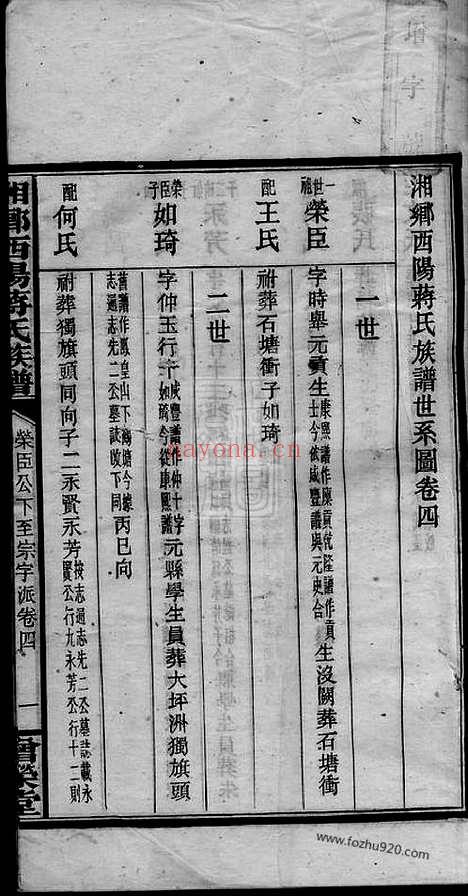 湘鄉西陽蔣氏族譜世系圖卷四
一世
一世祖 榮臣 字時舉元貢生康熙譜作廩貢乾隆譜作貢士今依咸豐譜與元史合生沒闕葬石塘衝
配 王氏 祔葬石塘衝子如琦
二世
榮臣子 如琦 字仲玉行千咸豐譜作仲十字如琦今從康熙譜元縣學生員葬大坪洲獨旗頭
舊譜作鳳皇山下鶴塘今據志過志先二公墓誌改下同丙巳向
配 何氏 祔葬獨旗頭同向子二永賢永芳按志過志先二公墓誌載永賢公行九永芳公行十二則
湘鄉西陽蔣氏族譜
榮臣公下至宗字派卷四
一
字
www.nayona.cn
www.fozhu920.com